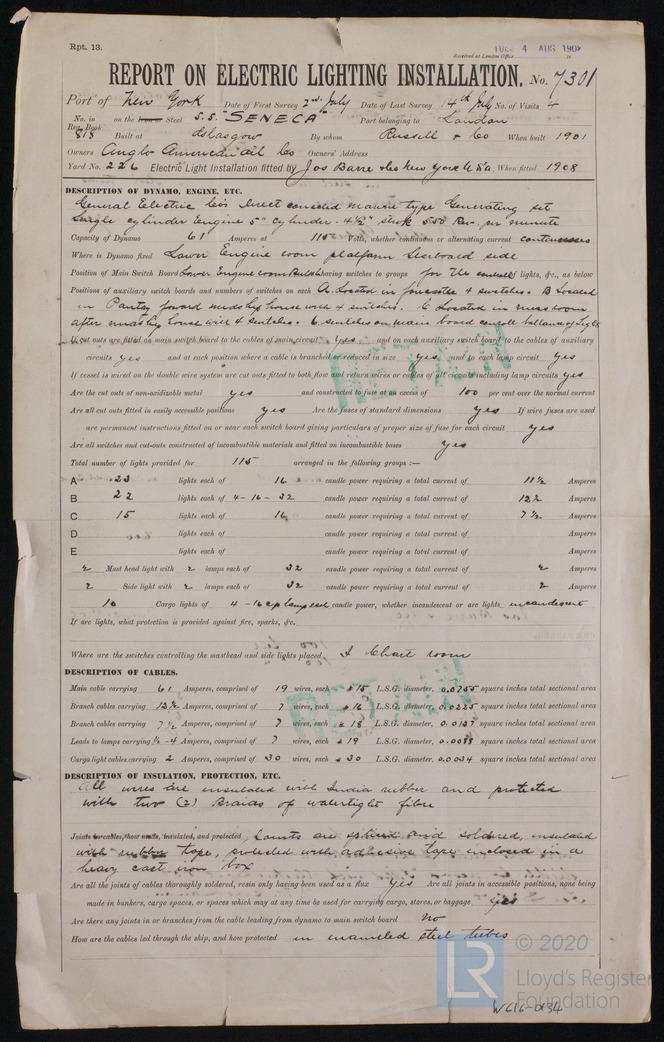 Rpt. 13.
TUES. 4 AUG 1908
Received at London Office
REPORT ON ELECTRIC LIGHTING INSTALLATION. No. 7301
Port of New York Date of First Survey 2nd July Date of Last Survey 14th July No. of Visits 4
No. in Reg. Book 818 on the Iron or Steel S.S. "SENECA" Port belonging to London
Built at Glasgow By whom Russell & Co When built 1901
Owners Anglo American Oil Co Owners' Address
Yard No. 226 Electric Light Installation fitted by Jos Barre & Co New York USa. When fitted 1908
DESCRIPTION OF DYNAMO, ENGINE, ETC.
General Electric Co's Direct conected marine type Generating set
Single cylinder Engine 5" Cylinder - 4½" stroke 550 Rev. per minute
Capacity of Dynamo 61 Amperes at 115 Volts, whether continuous or alternating current continuous
Where is Dynamo fixed Lower Engine room platform Starboard side
Position of Main Switch Board Lower Engine room Bulkh having switches to groups for the lights, &c., as below
Positions of auxiliary switch boards and numbers of switches on each A Located in forcastle 4 switches. B Located
in Pantry foward midship house with 4 switches. C Located in messroom
after midship house with 4 switches. 6 switches on main board controll ballance of lights
If cut outs are fitted on main switch board to the cables of main circuit yes and on each auxiliary switch board to the cables of auxiliary
circuits yes and at each position where a cable is branched or reduced in size yes and to each lamp circuit yes
If vessel is wired on the double wire system are cut outs fitted to both flow and return wires or cables of all circuits including lamp circuits yes
Are the cut outs of non-oxidizable metal yes and constructed to fuse at an excess of 100 per cent over the normal current
Are all cut outs fitted in easily accessible positions yes Are the fuses of standard dimensions yes If wire fuses are used
are permanent instructions fitted on or near each switch board giving particulars of proper size of fuse for each circuit yes
Are all switches and cut-outs constructed of incombustible materials and fitted on incombustible bases yes
Total number of lights provided for 115 arranged in the following groups :—
A 23 lights each of 16 candle power requiring a total current of 11½ Amperes
B 22 lights each of 4-16-32 candle power requiring a total current of 12½ Amperes
C 15 lights each of 16 candle power requiring a total current of 7½ Amperes
D lights each of candle power requiring a total current of Amperes
E lights each of candle power requiring a total current of Amperes
2 Mast head light with 2 lamps each of 32 candle power requiring a total current of 2 Amperes
2 Side light with 2 lamps each of 32 candle power requiring a total current of 2 Amperes
10 Cargo lights of 4-16 cp lamps each candle power, whether incandescent or arc lights incandescent
If arc lights, what protection is provided against fire, sparks, &c.
Where are the switches controlling the masthead and side lights placed Chart room
DESCRIPTION OF CABLES.
Main cable carrying 61 Amperes, comprised of 19 wires, each #15 L.S.G. diameter, 0.0755 square inches total sectional area
Branch cables carrying 12½ Amperes, comprised of 7 wires, each #16 L.S.G. diameter, 0.0225 square inches total sectional area
Branch cables carrying 7½ Amperes, comprised of 7 wires, each #18 L.S.G. diameter, 0.0137 square inches total sectional area
Leads to lamps carrying ½-4 Amperes, comprised of 7 wires, each #19 L.S.G. diameter, 0.0088 square inches total sectional area
Cargo light cables carrying 2 Amperes, comprised of 30 wires, each #30 L.S.G. diameter, 0.0034 square inches total sectional area
DESCRIPTION OF INSULATION, PROTECTION, ETC.
All wires are insulated with India rubber and protected
with two (2) Braids of watertight fibre
Joints in cables, how made, insulated, and protected Joints are spliced and soldered, insulated
with rubber tape, protected with adhesive tape enclosed in a
heavy cast iron box
Are all the joints of cables thoroughly soldered, resin only having been used as a flux yes Are all joints in accessible positions, none being
made in bunkers, cargo spaces, or spaces which may at any time be used for carrying cargo, stores, or baggage yes
Are there any joints in or branches from the cable leading from dynamo to main switch board No
How are the cables led through the ship, and how protected in enameled steel tubes
LR
© 2020
Lloyd's Register
Foundation
W616-0134